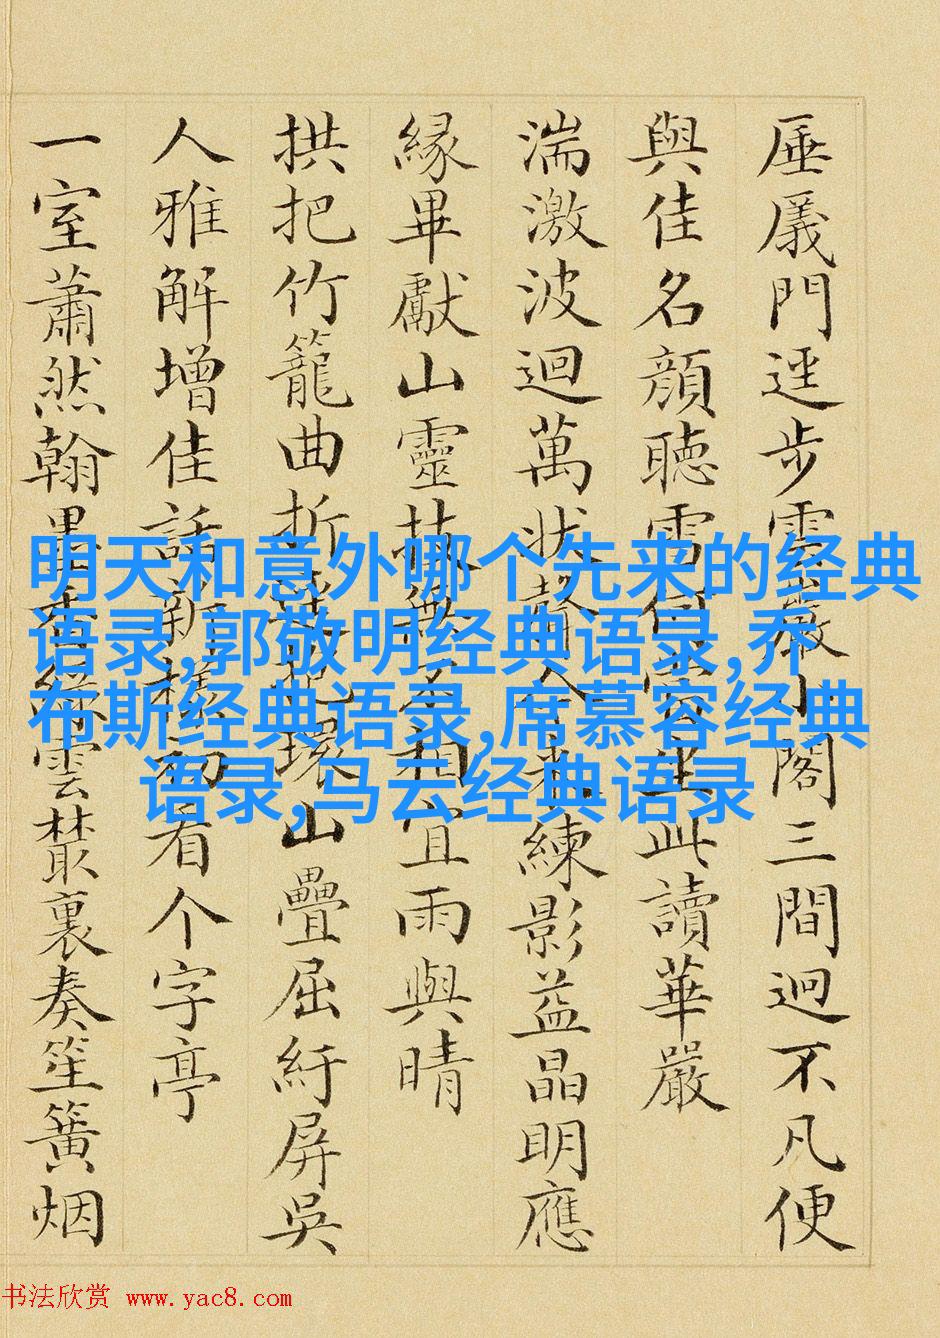 厜㕒門逕步雲巖小閣三間迥不凡便
與佳名顏聽雪何坐此讀華嚴
湍激波迴萬狀聲練影益晶明應
緣畢獻山靈技無不相宜雨與晴
拱把竹籠曲折環山疊屈紆屏吳
人雅解增佳話新樣初看个字亭
一室蕭然翰墨香綠雲藂裏奏笙簧烟
明天和意外哪个先来的经典
语录,郭敬明经典语录,乔
布斯经典语录,席慕容经典
语录,马云经典语录
书法欣赏 www.yac8.com